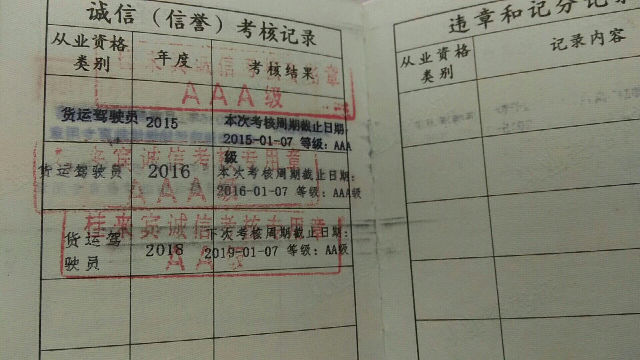 诚信（信誉）考核记录
从业资格
类别
年度
考核结果
AAA级
货运驾驶员 2015
本次考核周期截止日期：
2015-01-07 等级：AAA
级
来宾诚信考核专用章
AAA
货运驾驶员 2016
本次考核周期截止日期：
2016-01-07 等级：AAA级
桂来宾诚信考核专用章
AA级
货运驾
驶员
2018
下次考核周期截止日期：
2019-01-07 等级：AA级
违章和记分记录
从业资格
类别
记录内容